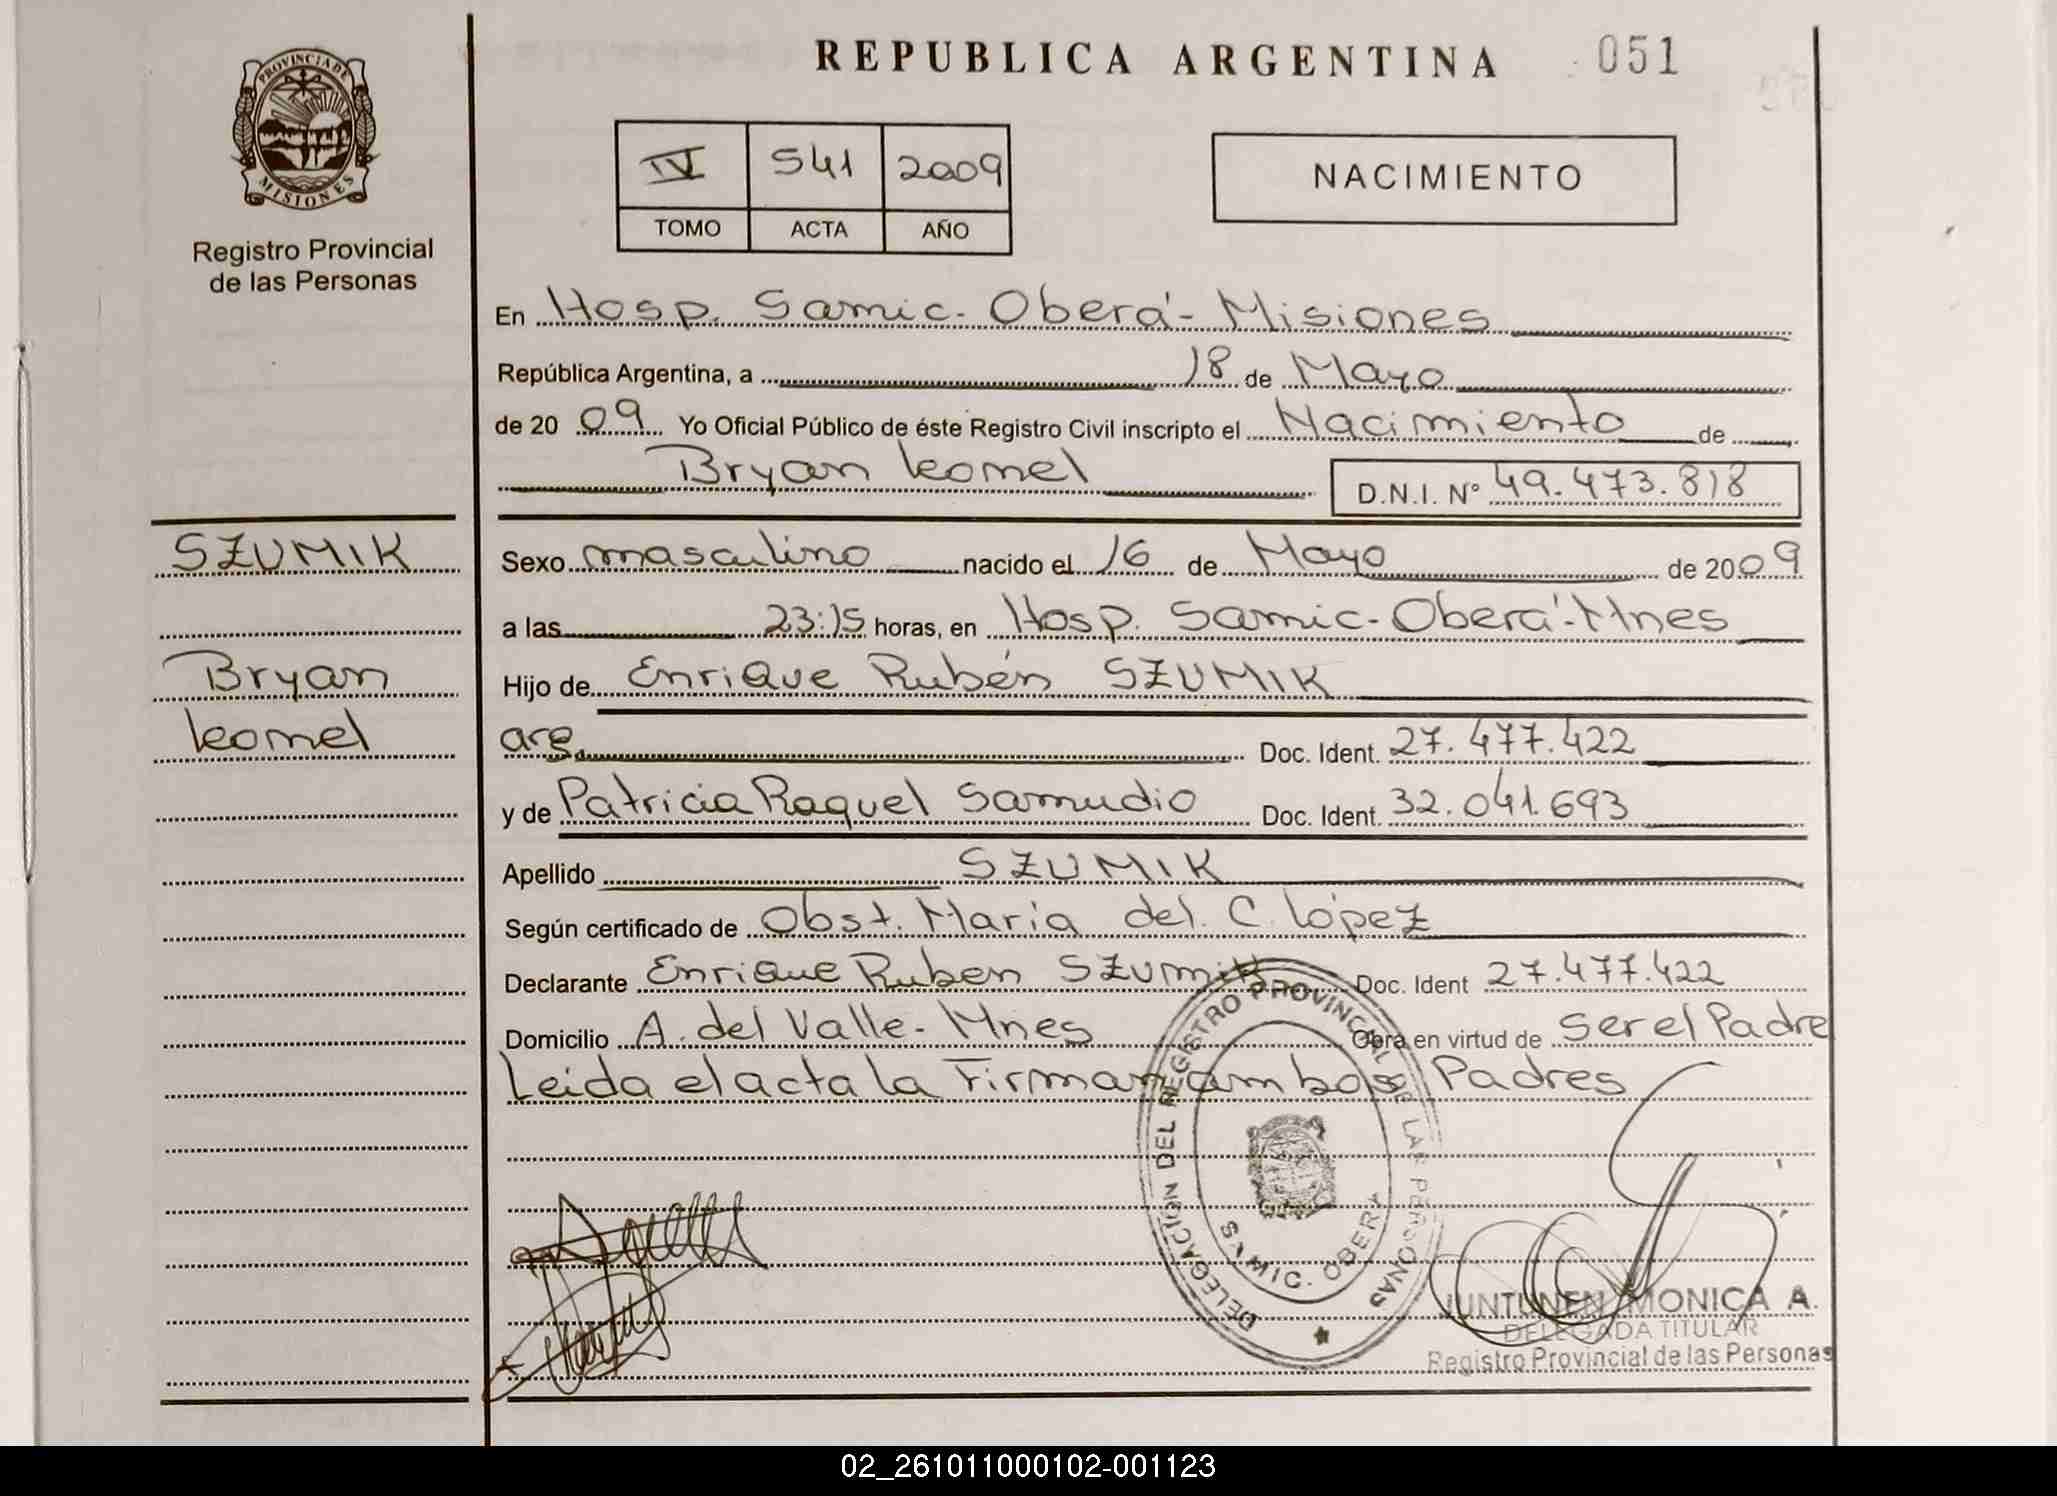 REPUBLICA ARGENTINA 051
PROVINCIA DE
MISIONES
Registro Provincial
de las Personas
IV 541 2009
TOMO ACTA AÑO
NACIMIENTO
En Hosp. Samic - Oberá - Misiones
República Argentina, a 18 de Mayo
de 20 09 Yo Oficial Público de éste Registro Civil inscripto el Nacimiento de
Bryan Leonel D.N.I. Nº 49.473.818
SZUMIK
Bryan
Leonel
Sexo masculino nacido el 16 de Mayo de 20 09
a las 23:15 horas, en Hosp. Samic - Oberá - Mnes
Hijo de Enrique Rubén SZUMIK
arg. Doc. Ident. 27.477.422
y de Patricia Raquel Samudio Doc. Ident. 32.041.693
Apellido SZUMIK
Según certificado de Obst. María del. C. López
Declarante Enrique Ruben SZUMIK Doc. Ident 27.477.422
Domicilio A. del Valle - Mnes Obra en virtud de ser el Padre
Leída el acta la Firman ambos Padres
DELEGACION DEL REGISTRO PROVINCIAL DE LAS PERSONAS
SAMIC. OBERA
JUNTUNEN MONICA A.
DELEGADA TITULAR
Registro Provincial de las Personas
02_261011000102-001123